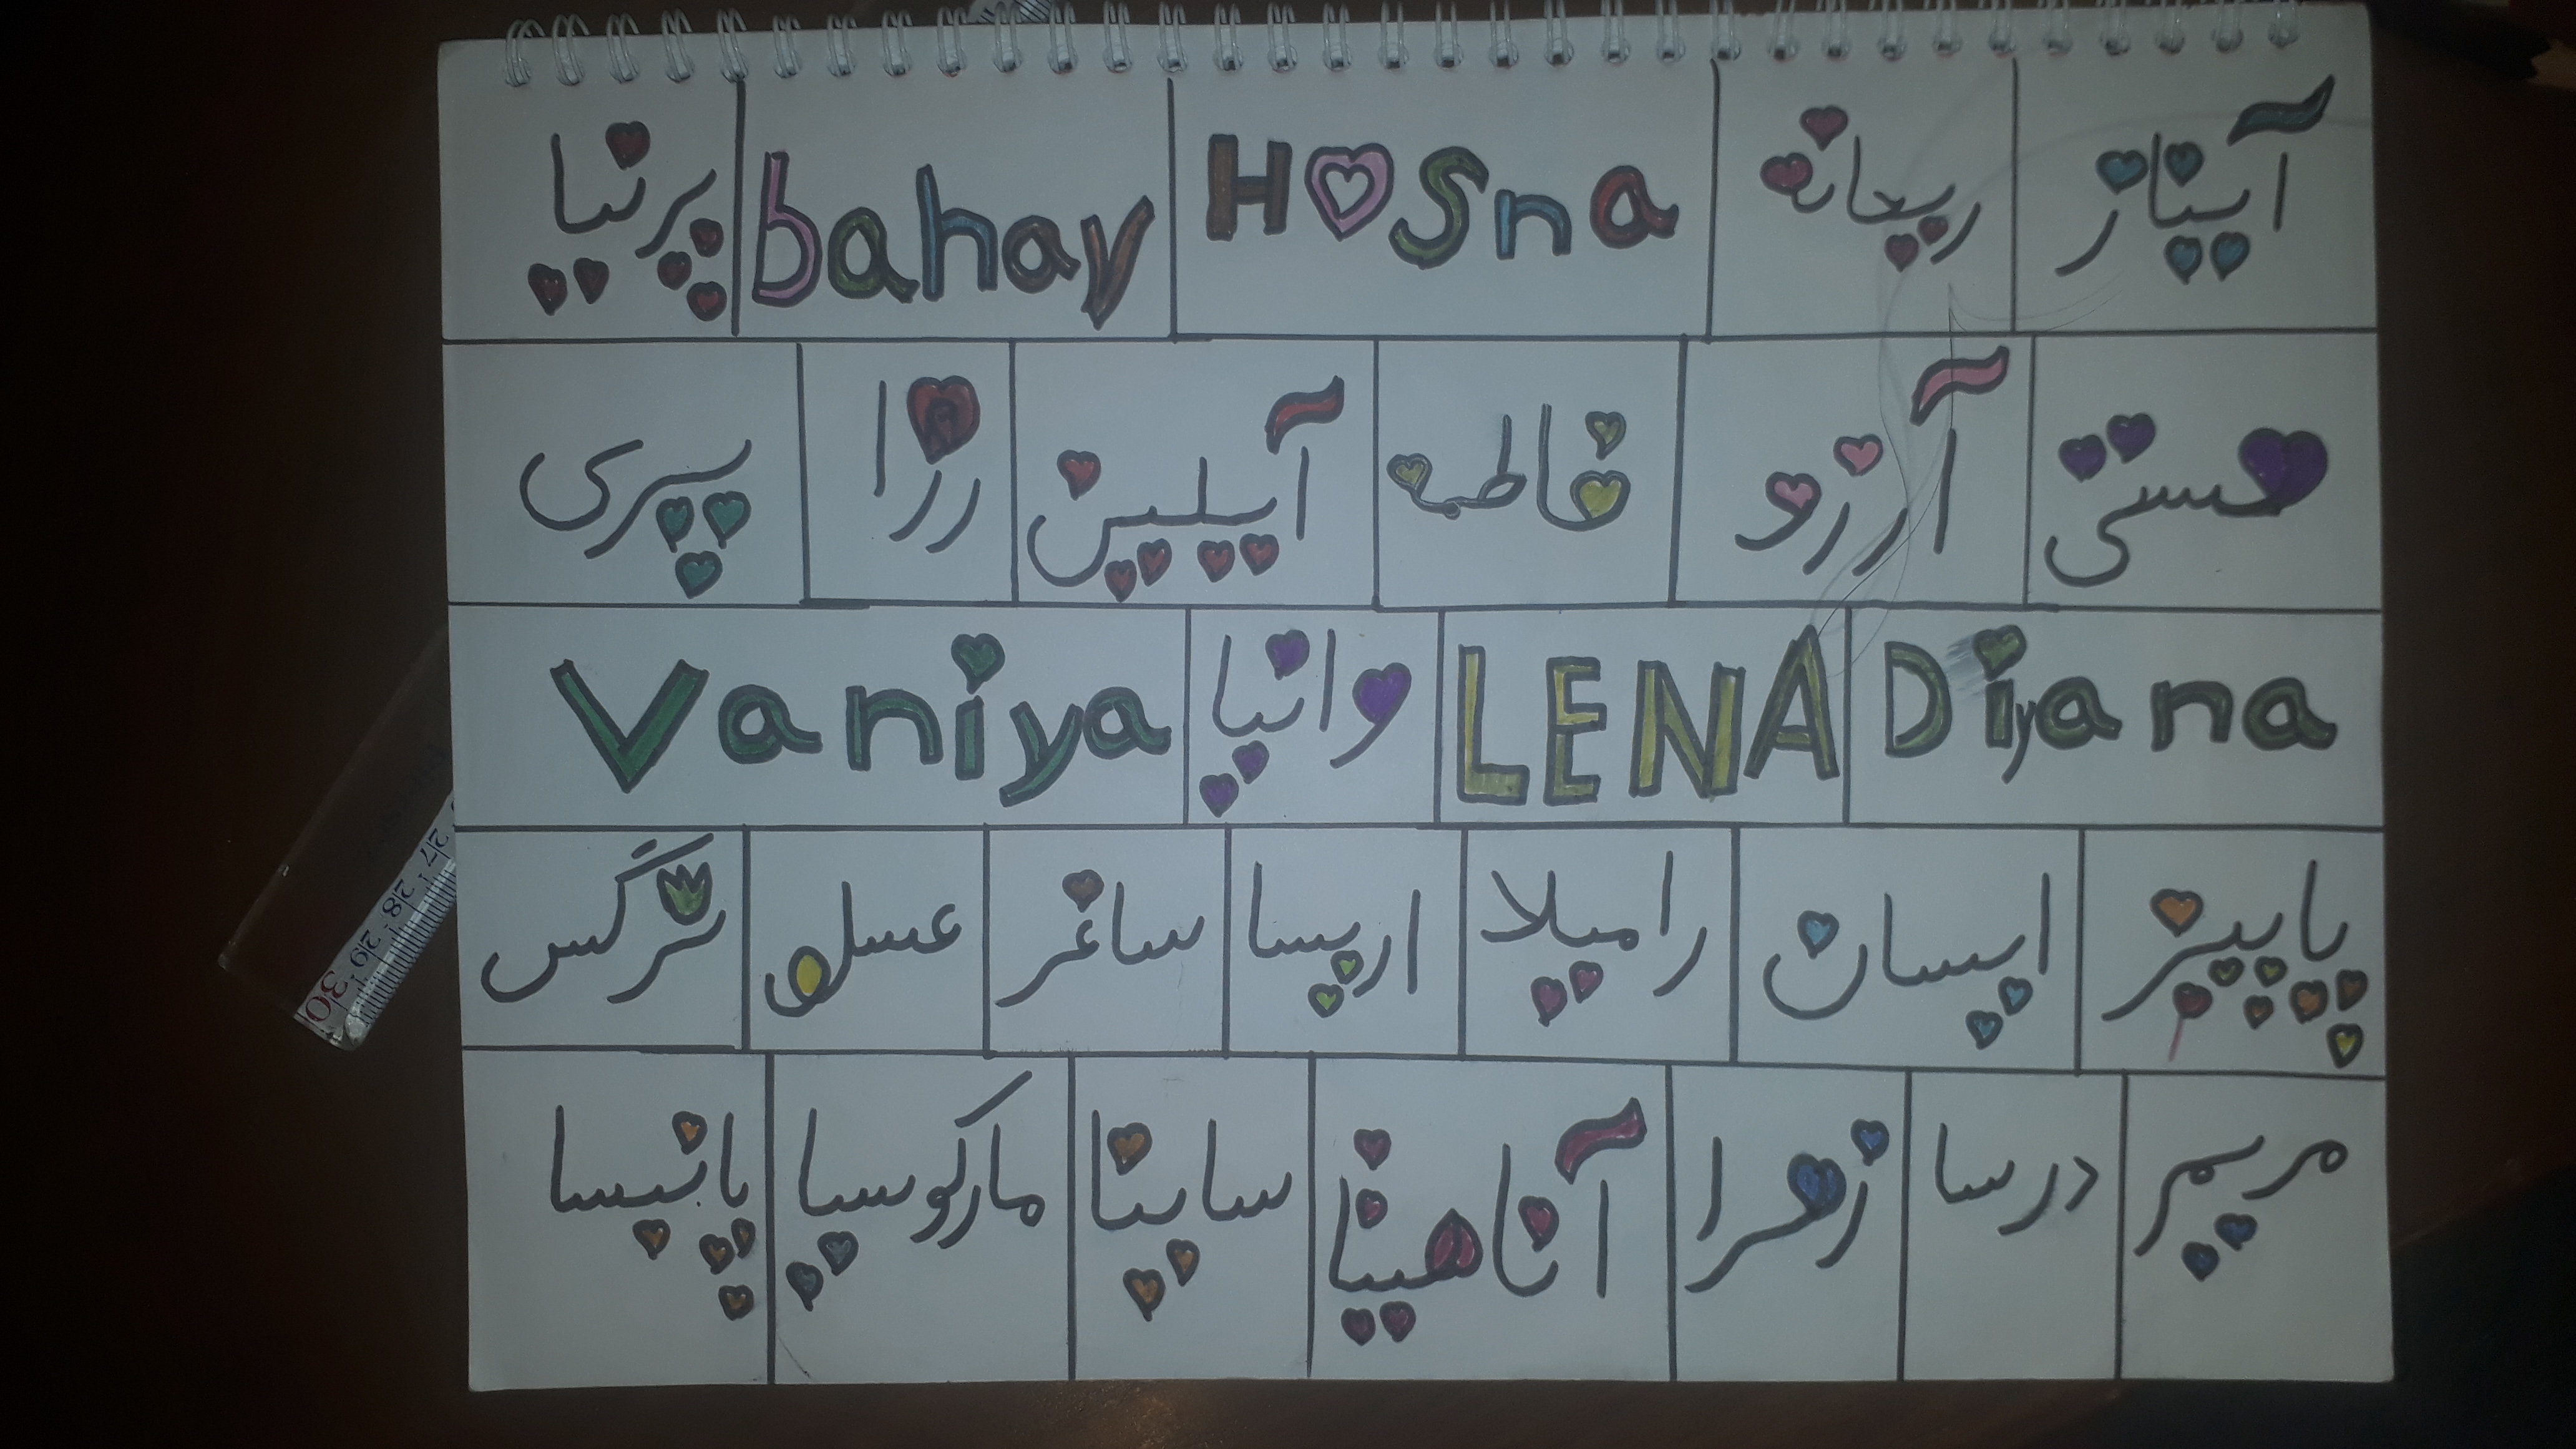 آیناز ریحانه Hosna bahar پرنیا
هستی آرزو فاطمه آیلین رزا پری
Vaniya وانیا LENA Diyana
پاییز اپسان رامیلا ارپسا ساغر عسل نرگس
مریم درسا زهرا آناهیتا ساینا مارکوسیا پانیسا
27 28 29 30